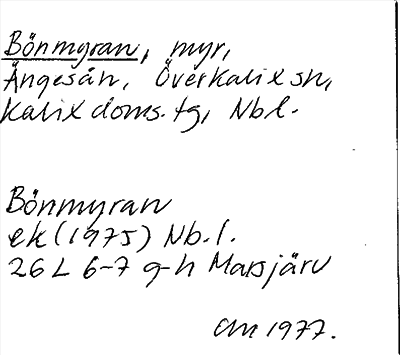 Bönmyran, myr,
Ängesån, Överkalix sn,
Kalix doms. tg, Nbl.
Bönmyran
ek (1975) Nb.l.
26 L 6-7 g-h Marsjärv
CM 1977.